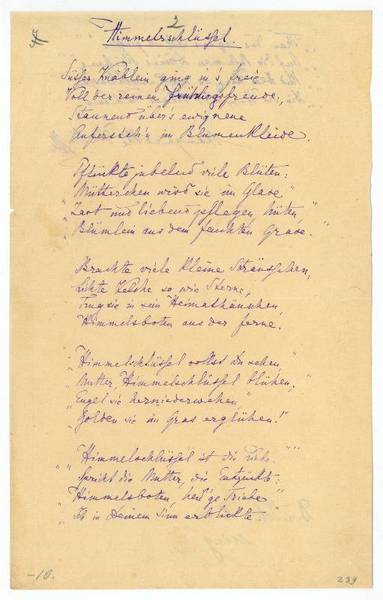 2
Himmelsschlüssel.
Süßer Knäblein ging in's freie
Voll der reinen Frühlingsfreude,
Staunend über's ewigneue
Aufersteh'n im Blumenkleide.
Pflückte jubelnd viele Blüten:
"Mütterchen wird sie im Glase"
"Zart und liebend pflegen, hüten"
"Blümlein aus dem feuchten Grase."
Brachte viele kleine Sträusschen,
Kelche so wie Sterne,
Trug sie in sein Heimathäuschen
Himmelsboten aus der Ferne.
"Himmelschlüssel sollst Du sehen,"
"Mutter, Himmelschlüssel blühen,"
"Engel sie herniederwehen"
"Golden sie im Gras erglühen!"
"Himmelschlüssel ist die Liebe"
Spricht die Mutter, die Entzückte:
"Himmelsboten, heil'ge Triebe"
"Ich in Deinem Sinn erblickte
-10.
239